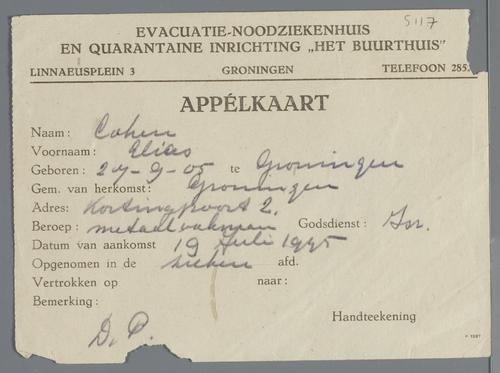 5117
EVACUATIE-NOODZIEKENHUIS
EN QUARANTAINE INRICHTING „HET BUURTHUIS”
LINNAEUSPLEIN 3 GRONINGEN TELEFOON 285.
APPÉLKAART
Naam: Cohen
Voornaam: Elias
Geboren: 27-9-05 te Groningen
Gem. van herkomst: Groningen
Adres: Kortingpoort 2.
Beroep: metaalvakman Godsdienst: Isr.
Datum van aankomst 19 Juli 1945
Opgenomen in de zieken afd.
Vertrokken op naar:
Bemerking:
D. P.
Handteekening